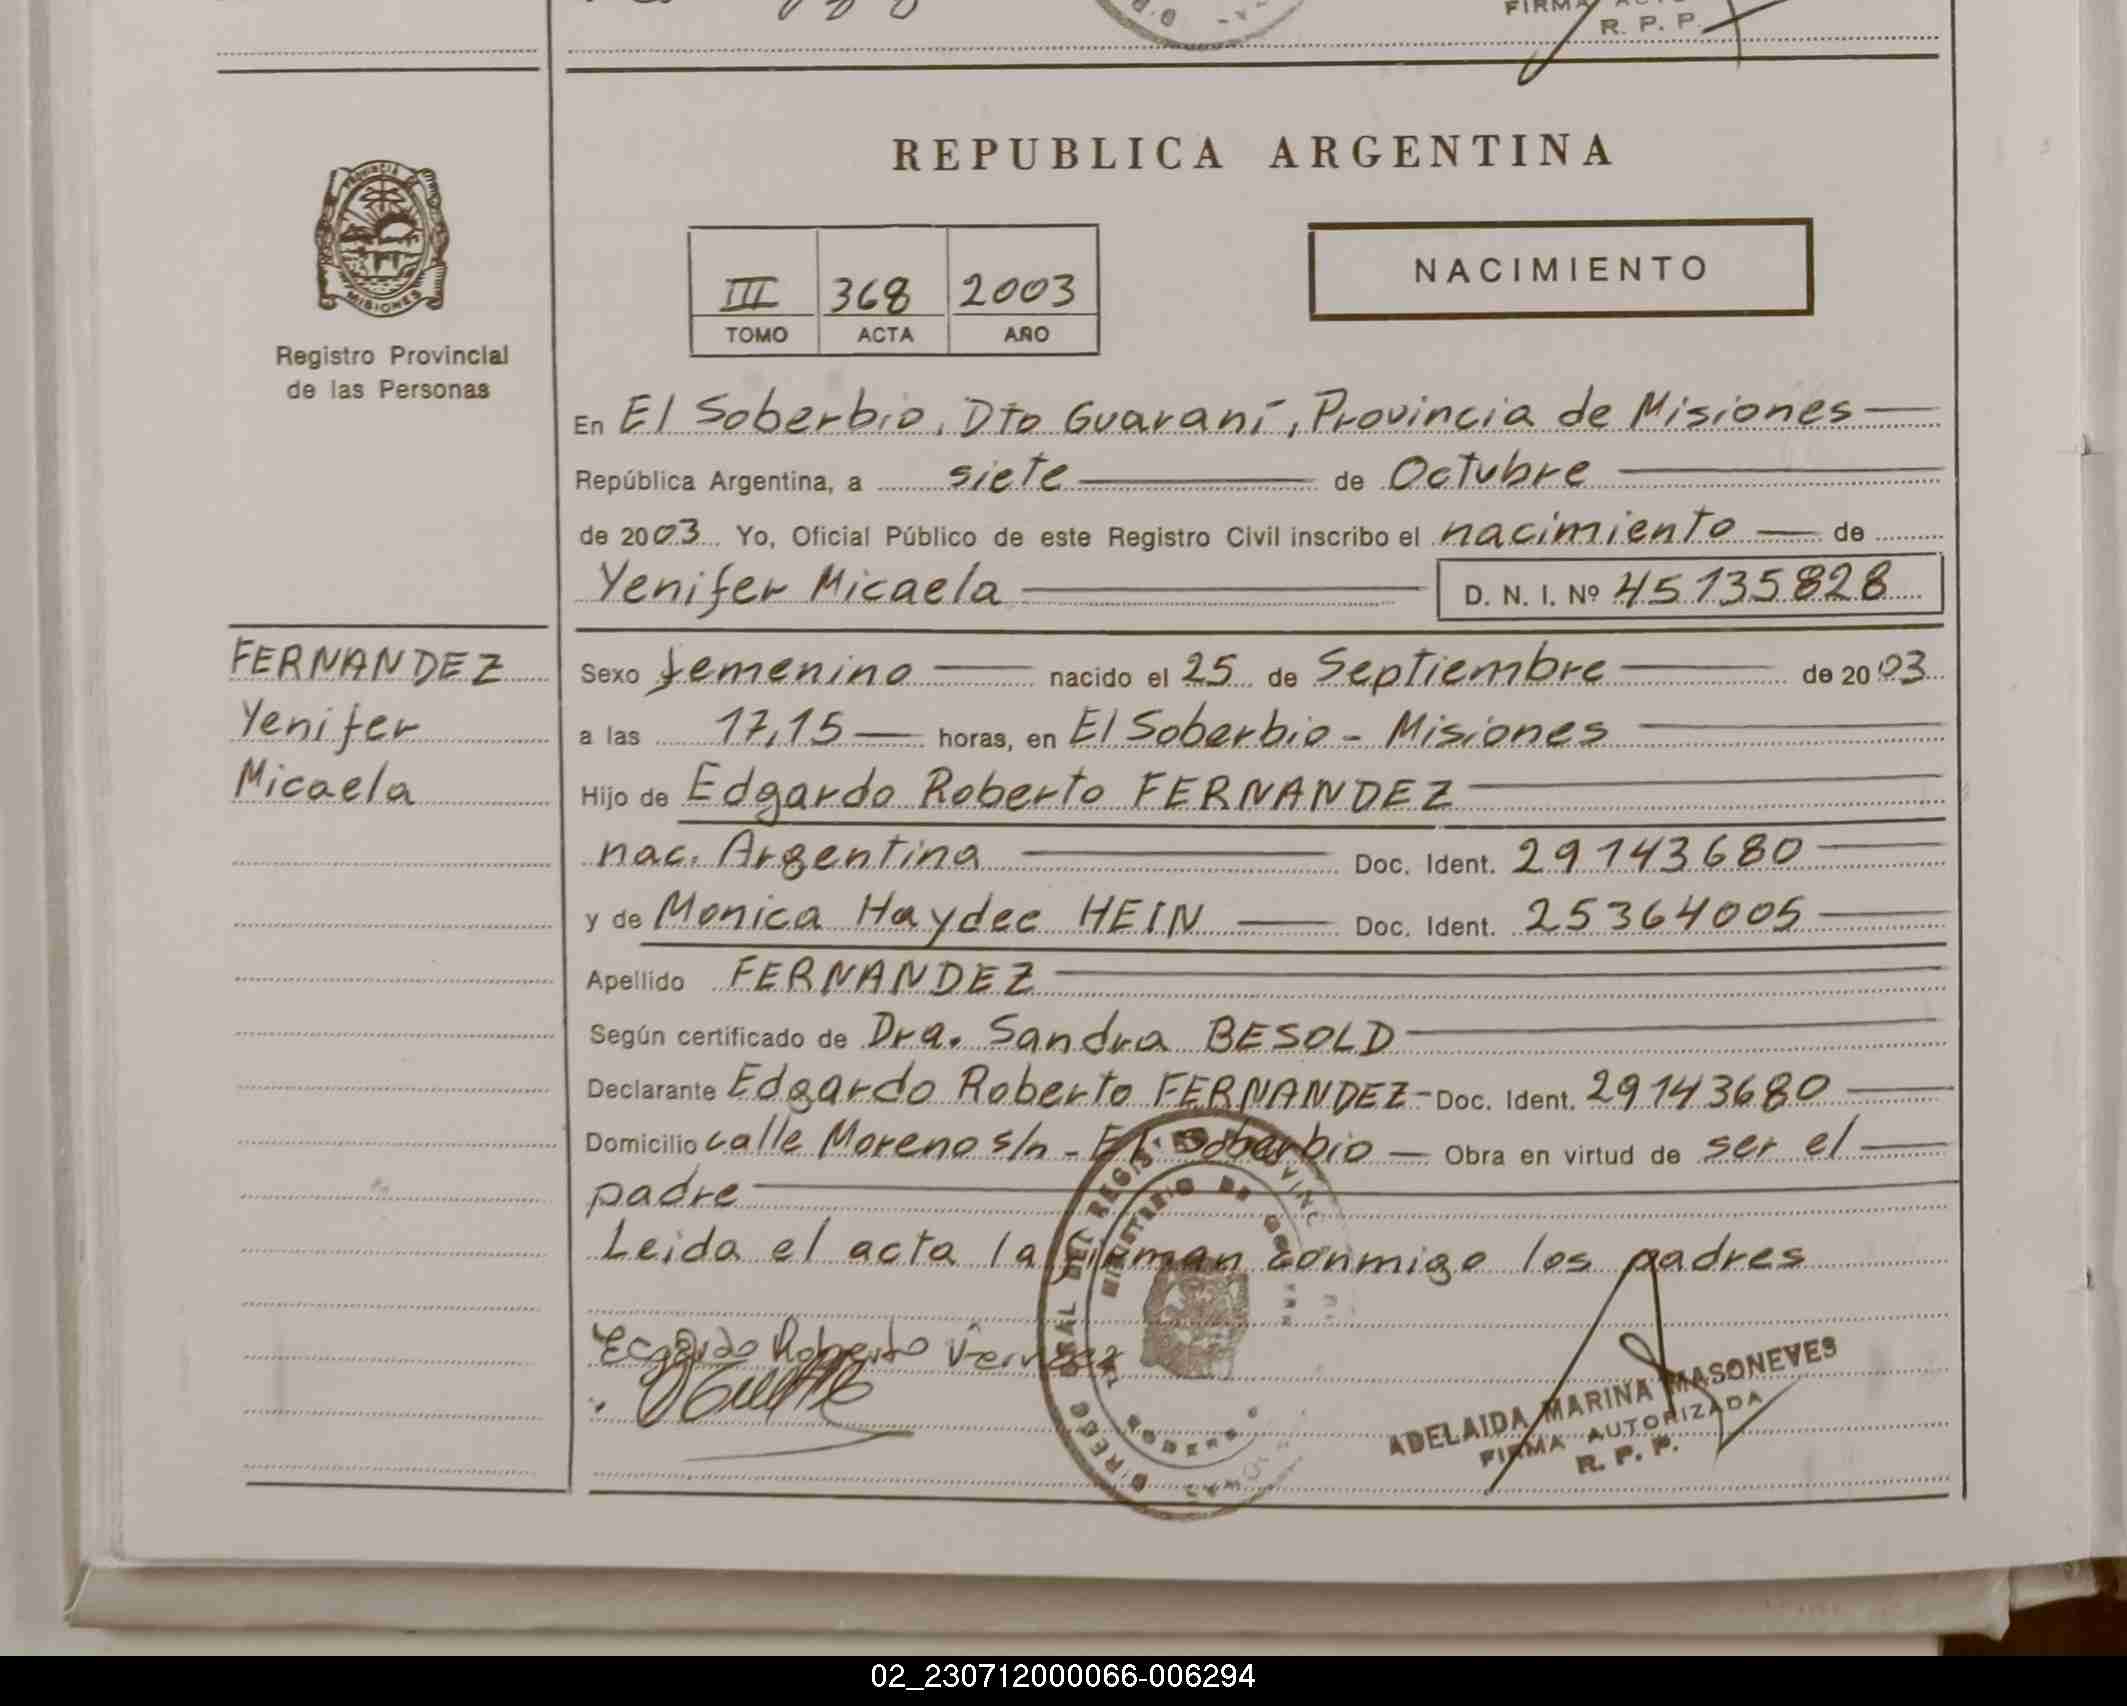 FIRMA
R. P. P.
REPUBLICA ARGENTINA
PROVINCIA DE
MISIONES
Registro Provincial
de las Personas
III 368 2003
TOMO ACTA AÑO
NACIMIENTO
En El Soberbio, Dto Guaraní, Provincia de Misiones
República Argentina, a siete de Octubre
de 2003 Yo, Oficial Público de este Registro Civil inscribo el nacimiento de
Yenifer Micaela D. N. I. Nº 45135828
FERNANDEZ
Yenifer
Micaela
Sexo femenino nacido el 25 de Septiembre de 2003
a las 17,15 horas, en El Soberbio - Misiones
Hijo de Edgardo Roberto FERNANDEZ
nac. Argentina Doc. Ident. 29143680
y de Monica Haydee HEIN Doc. Ident. 25364005
Apellido FERNANDEZ
Según certificado de Dra. Sandra BESOLD
Declarante Edgardo Roberto FERNANDEZ - Doc. Ident. 29143680
Domicilio calle Moreno s/n - El Soberbio Obra en virtud de ser el
padre
Leida el acta la firman conmigo los padres
Roberto
ADELAIDA MARINA MASONEVES
FIRMA AUTORIZADA
R. P. P.
02_230712000066-006294